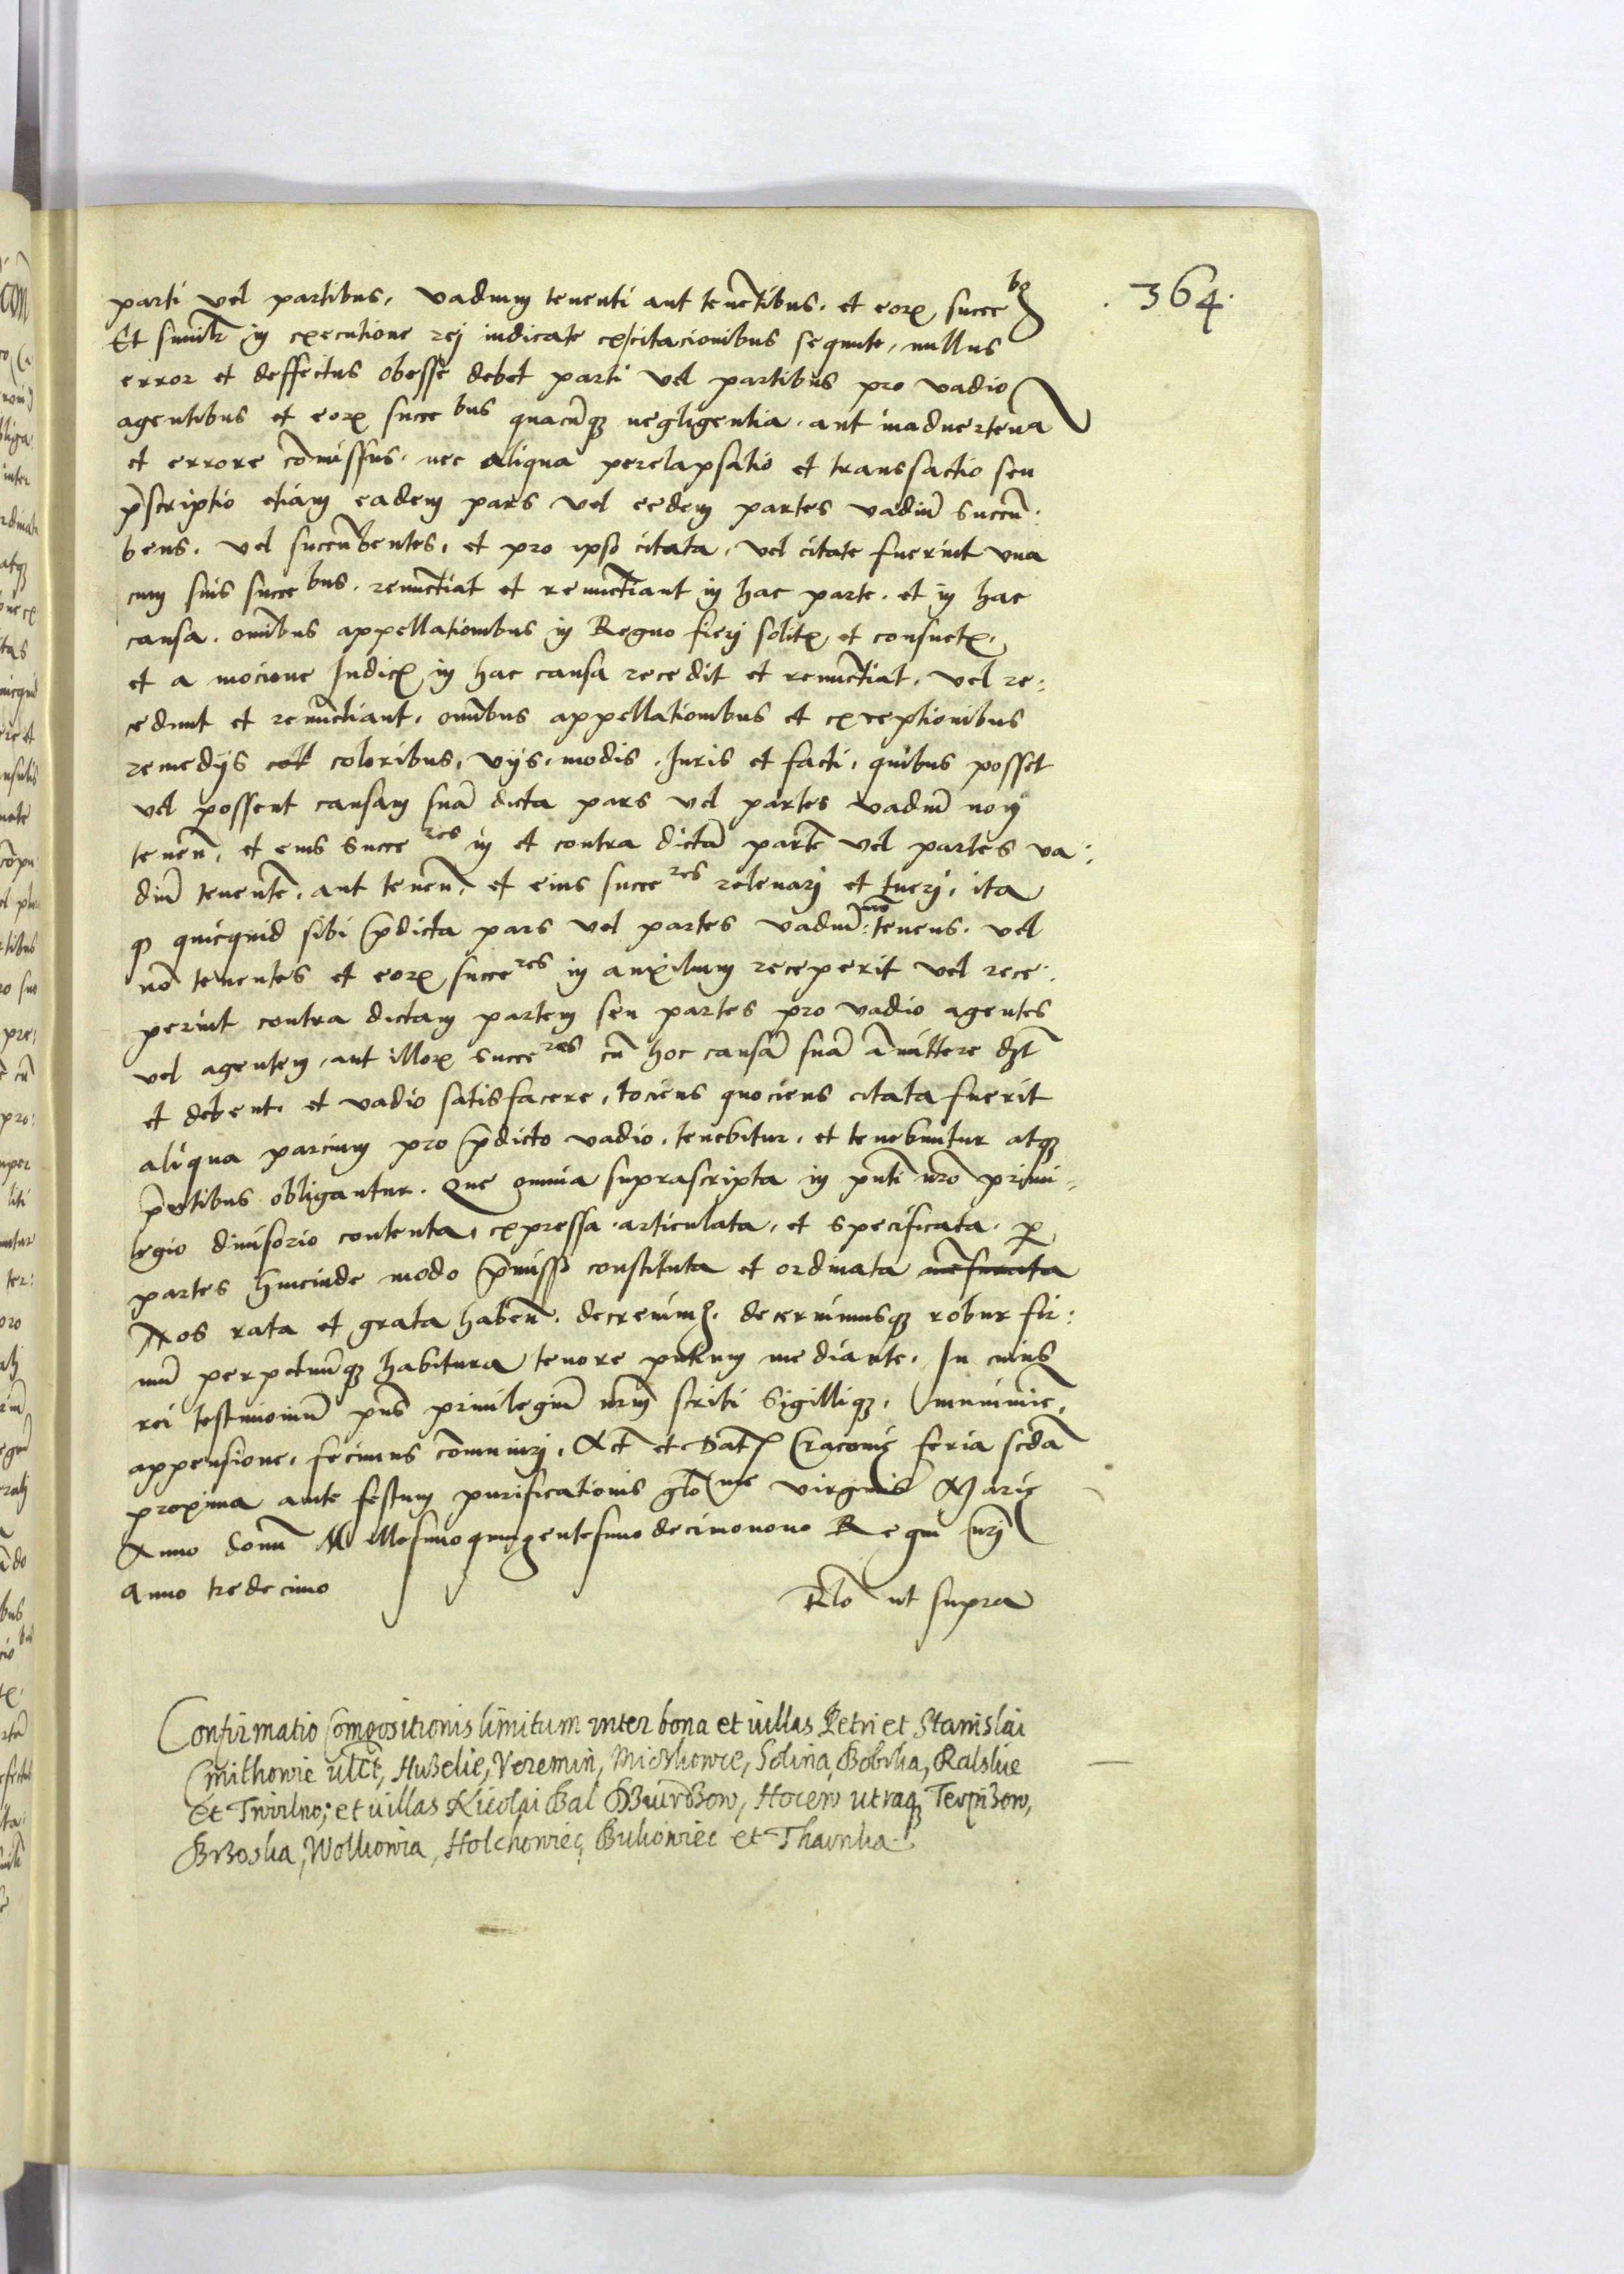 .364.
parti vel partibus, vadium tenenti aut tenētibus. et eorꝝ succe bꝫ
Et similr̄ in executione rej iudicate ex citacionibus sequute, nullus
error et deffectus obesse debet parti vel partibus pro vadio
agentibus et eorꝝ succe bus quacūqꝫ negligentia. aut inaduertena
et errore cōmissus. nec aliqua perelapsatio et transsactio seu
p̄scriptio etiam eadem pars vel eedem partes vadiū succū:
bens. vel succūbentes, et pro ipso citata, vel citate fuerint vna
cum suis succe bus. renūctiat et renūctiant in hac parte. et in hac
causa. omībus appellationibus in Regno fierj solitꝭ et consuetꝭ.
et a mocione Judicꝭ in hac causa recedit et renūctiat, vel re:
cedunt et renūctiant, omībus appellationibus et exceptionibus
remedijs coll coloribus, vijs, modis. Juris et facti, quibus posset
vel possent causam suā dicta pars vel partes vadiū non
tenen̄, et eius succe res in et contra dictā partē vel partes va:
diū tenentē, aut tenen̄, et eius succe res releuarj et tuerj, ita
ꝙ quicquid sibi p̄dicta pars vel partes vadiū: nō tenens. vel
nō tenentes et eorꝝ succe res in auxilium receperit vel rece:
perint contra dictam partem seu partes pro vadio agentes
vel agentem, aut illorꝝ succe res cū hoc causā suā amittere dꝫt
et debent, et vadio satisfacere, tociens quociens citata fuerit
aliqua parcium pro p̄dicto vadio, tenebitur, et tenebuntur atqꝫ
p̄ntibus obligantur. Que omnia suprascripta in pn̄ti nr̄o priui-
legio diuisorio contenta, expressa articulata, et specificata. ꝑ
partes hincinde modo p̄misso constituta et ordinata
Nos rata et grata haben̄. decreuimꝰ. decernimusqꝫ robur fir:
mū perpetuūqꝫ habitura tenore pn̄tium mediante. In cuius
rei testimoniū pn̄s priuilegiū nr̄m scribi Sigilliqꝫ, munimīe,
appensione, fecimus cōmunirj, Act̄ et Datꝭ Cracovię feria scdā
proxima ante festum purificationis glo me virginis Marię
Anno domī Millesimoquingentesimodecimonono Regni nr̄j
anno tredecimo
Rl̄o ut supra
Confirmatio Compositionis limitum inter bona et uillas Petri et Stanislai
Cmithowie Huzelie, Veremin, Miczkowce, Solina, Bobrka, Ralskie
et Twirlno; et uillas Nicolai Bal Hocew utraqꝫ Terpizow,
Brzoska, Wolkowia, Holchowięc, Bukowiec et Thavrka.